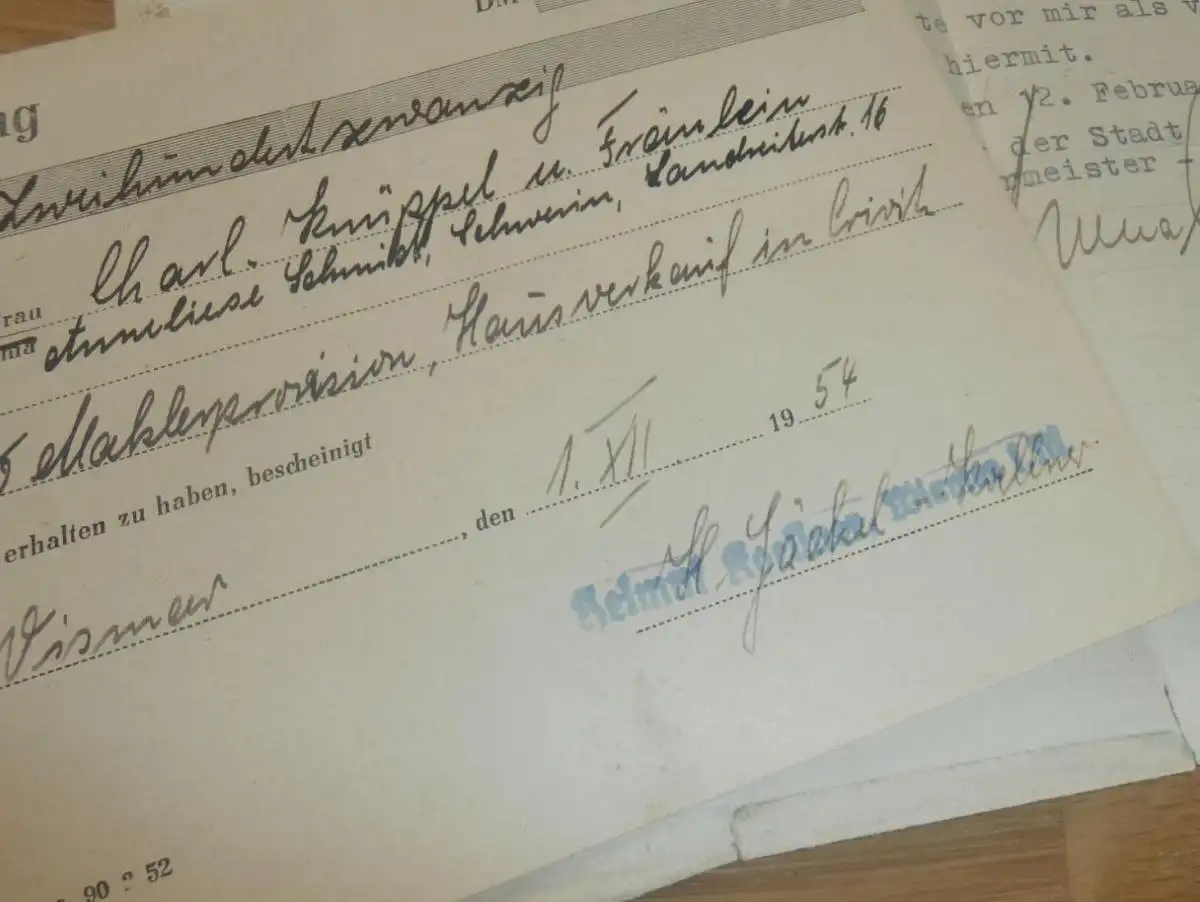 DM
ng
Zweihundertzwanzig
rau
ma
Charl. Knüppel u. Fräulein
Anneliese Schmidt, Schwerin, Landreiterstr. 16
Maklerprovision, Hausverkauf in Crivitz
erhalten zu haben, bescheinigt
Wismar , den 1. XII. 19 54
Helmut
H. Jöckel
90 2 52
te vor mir als v
hiermit.
en 12. Februa
der Stadt
rmeister -